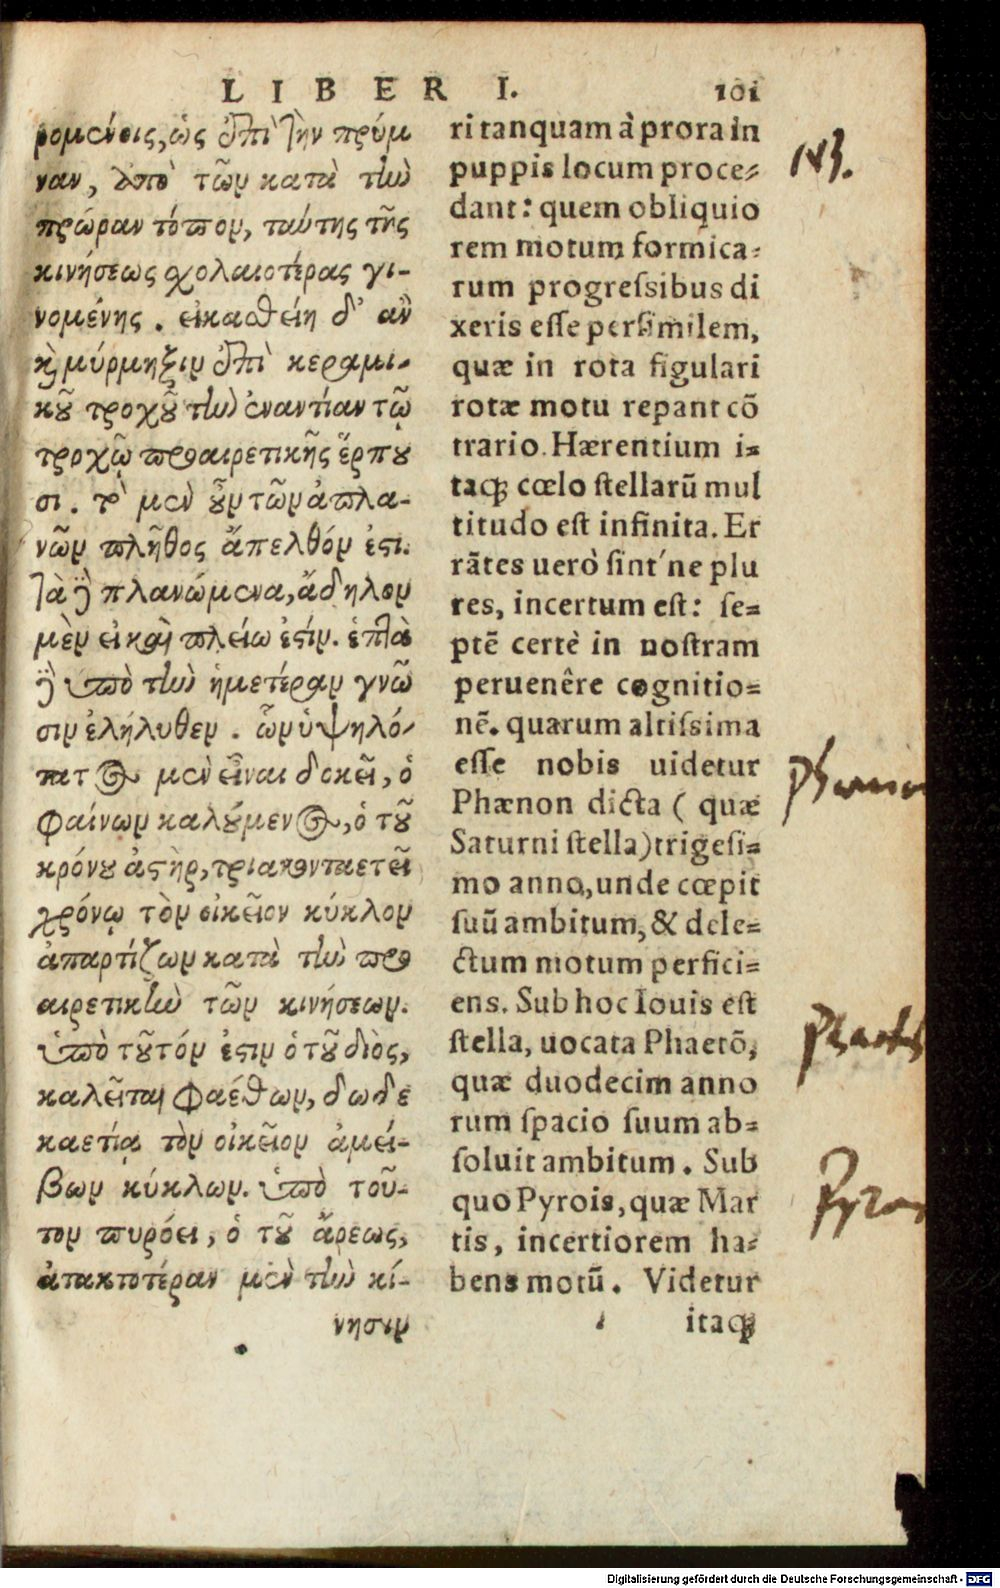 LIBER I. 101
ρομένοις, ὡς ἐπὶ τὴν πρύμ
ναν, ἀπὸ τῶν κατὰ τὴν
πρώραν τόπον, ταύτης τῆς
κινήσεως σχολαιοτέρας γι-
νομένης. εἰκασθείη δ' ἂν
καὶ μύρμηξιν ἐπὶ κεραμι-
κοῦ τροχοῦ τὴν ἐναντίαν τῷ
τροχῷ προαιρετικῆς ἕρπου
σι. τὸ μὲν οὖν τῶν ἀπλα-
νῶν πλῆθος ἄπειρόν ἐστι.
τὰ δὲ πλανώμενα, ἄδηλον
μὲν εἰ καὶ πλείω ἐστίν. ἑπτὰ
δὲ ὑπὸ τὴν ἡμετέραν γνῶ
σιν ἐλήλυθεν. ὧν ὑψηλό-
τατος μὲν εἶναι δοκεῖ, ὁ
φαίνων καλούμενος, ὁ τοῦ
κρόνου ἀστὴρ, τριακονταετεῖ
χρόνῳ τὸν οἰκεῖον κύκλον
ἀπαρτίζων κατὰ τὴν προ
αιρετικὴν τῶν κινήσεων.
ὑπὸ τοῦτόν ἐστιν ὁ τοῦ διὸς,
καλεῖται φαέθων, δωδε
καετίᾳ τὸν οἰκεῖον ἀμεί-
βων κύκλων. ὑπὸ τοῦ-
τον πυρόει, ὁ τοῦ ἄρεως,
ἀτακτοτέραν μὲν τὴν κί-
νησιν
ri tanquam à prora in
puppis locum proce-
dant: quem obliquio
rem motum formica-
rum progressibus di
xeris esse persimilem,
quæ in rota figulari
rotæ motu repant cō
trario. Hærentium i-
taq; cœlo stellarū mul
titudo est infinita. Er
rātes uerò sint'ne plu
res, incertum est: se-
ptē certè in nostram
peruenêre cognitio-
nē. quarum altissima
esse nobis uidetur
Phænon dicta (quæ
Saturni stella) trigesi-
mo anno, unde cœpit
suū ambitum, & dele-
ctum motum perfici-
ens. Sub hoc Iouis est
stella, uocata Phaetō,
quæ duodecim anno
rum spacio suum ab-
soluit ambitum. Sub
quo Pyrois, quæ Mar
tis, incertiorem ha-
bens motū. Videtur
itaq;
Phænon
Phaeton
Pyrois
Digitalisierung gefördert durch die Deutsche Forschungsgemeinschaft - DFG